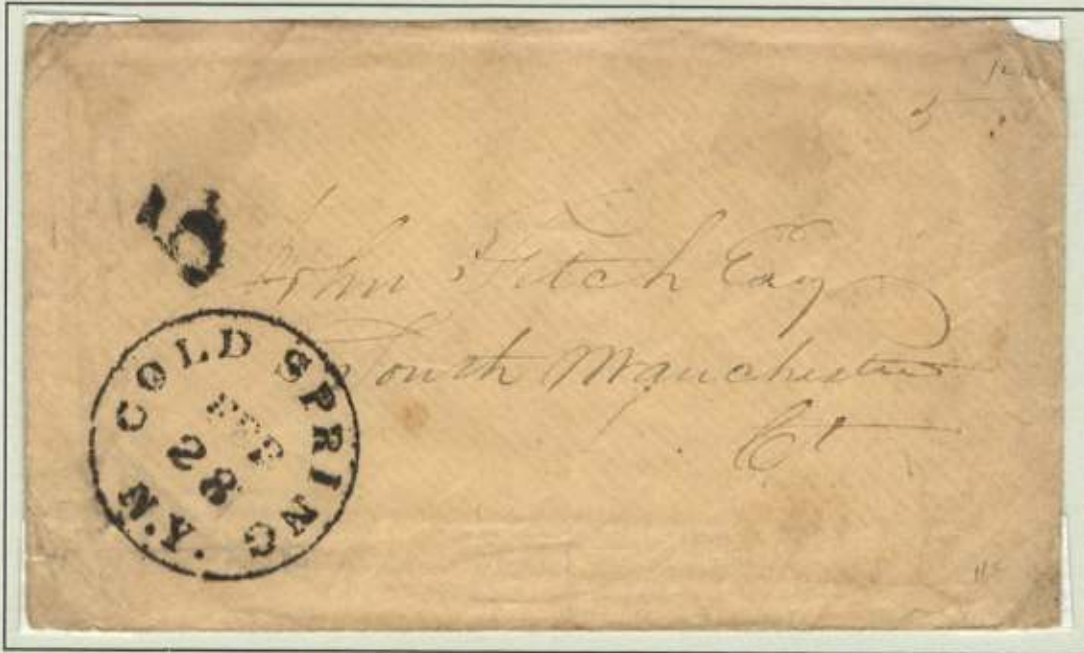 5
John Fitch Esq
South Manchester
Ct
COLD SPRING N.Y.
SEP
28